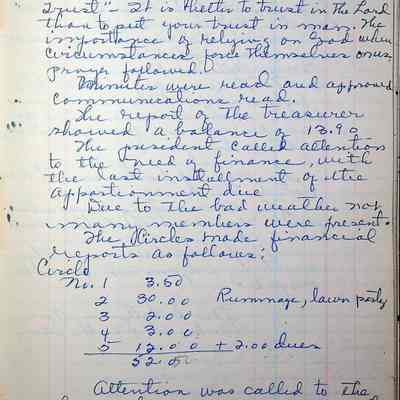 Trust" - It is better to trust in the Lord
than to put your trust in man. The
importance of relying on God when
circumstances force themselves on us.
Prayer followed.
Minutes were read and approved
Communications read.
The report of the treasurer
showed a balance of 13.90
The president called attention
to the need of finance, with
the last installment of the
apportionment due
Due to the bad weather not
many members were present.
The Circles made financial
reports as follows:
Circle
No. 1 3.50
2 30.00 Rummage, lawn party
3 2.00
4 3.00
5 12.00 + 2.00 dues
52.50
Attention was called to the